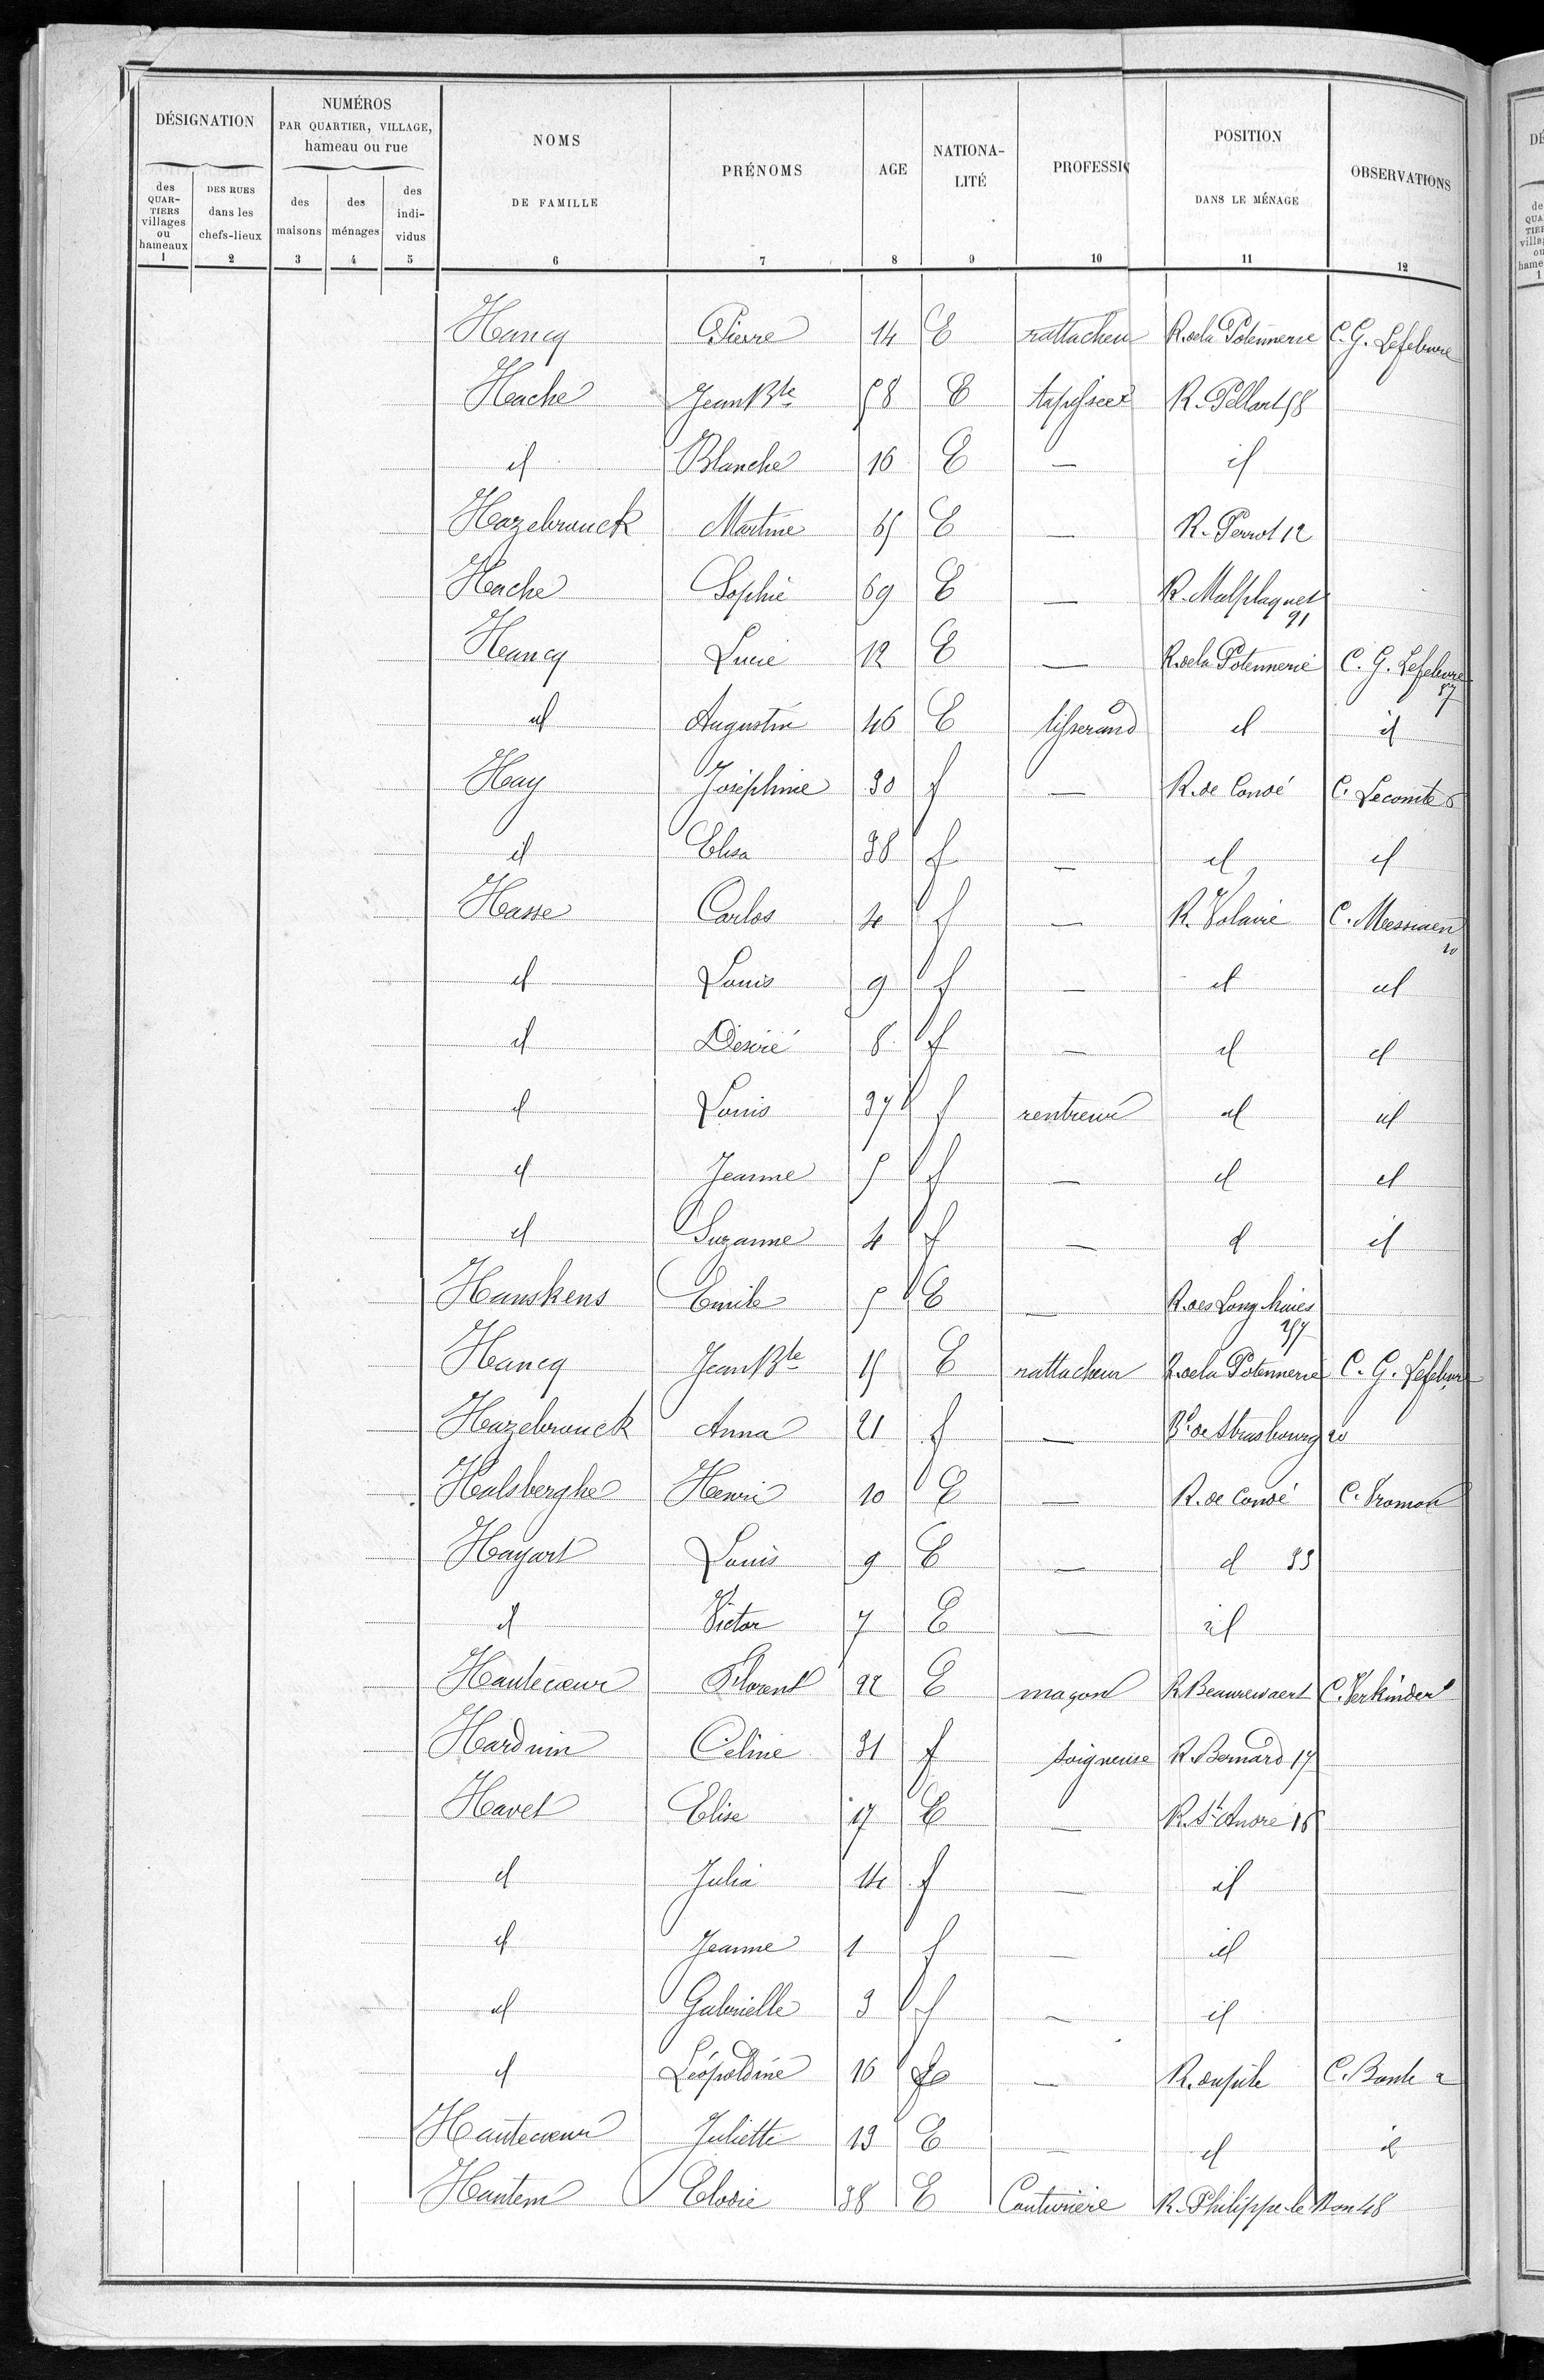 DÉSIGNATION
NUMÉROS
PAR QUARTIER, VILLAGE,
hameau ou rue
NOMS
DE FAMILLE
PRÉNOMS
AGE
NATIONA-
LITÉ
PROFESSIO
POSITION
DANS LE MÉNAGE
OBSERVATIONS
des
QUAR-
TIERS
villages
ou
hameaux
DES RUES
dans les
chefs-lieux
des
maisons
des
ménages
des
indi-
vidus
1 2 3 4 5 6 7 8 9 10 11 12
Hancq Pierre 14 E rattacheur R. de la Potennerie C. G. Lefebvre
Hache Jean Bte 58 E tapissier R. Pellart 58
id Blanche 16 E — id
Hazebrouck Martine 65 E — R. Perrot 12
Hache Sophie 69 E — R. Malplaquet 91
Hancq Lucie 12 E — R. de la Potennerie C. G. Lefebvre 57
id Augustin 46 E tisserand id id
Hay Joséphine 30 f — R. de Condé C. Lecomte 6
id Elisa 38 f — id id
Hasse Carlos 4 f — R. Volaire C. Messiaen 20
id Louis 9 f — id id
id Désiré 8 f — id id
id Louis 37 f rentreur id id
id Jeanne 5 f — id id
id Suzanne 4 f — id id
Hanskens Emile 5 E — R. des Long haies 257
Hancq Jean Bte 15 E rattacheur R. de la Potennerie C. G. Lefebvre
Hazebrouck Anna 21 f — Bd de Strasbourg 20
Halsberghe Henri 10 E — R. de Condé C. Vromon
Hayart Louis 9 E — id 33
id Victor 7 E — id
Hautecoeur Florent 22 E maçon R. Beaurewaert C. Verkinder
Harduin Céline 31 f soigneuse R. Bernard 17
Havet Elise 17 E — R. St André 16
id Julia 14 f — id
id Jeanne 1 f — id
id Gabrielle 3 f — id
id Léopoldine 16 — C. Bonte 2
Hautecoeur Juliette 13 E — id id
Hantem Elodie 38 E Couturière R. Philippe-le Bon 48